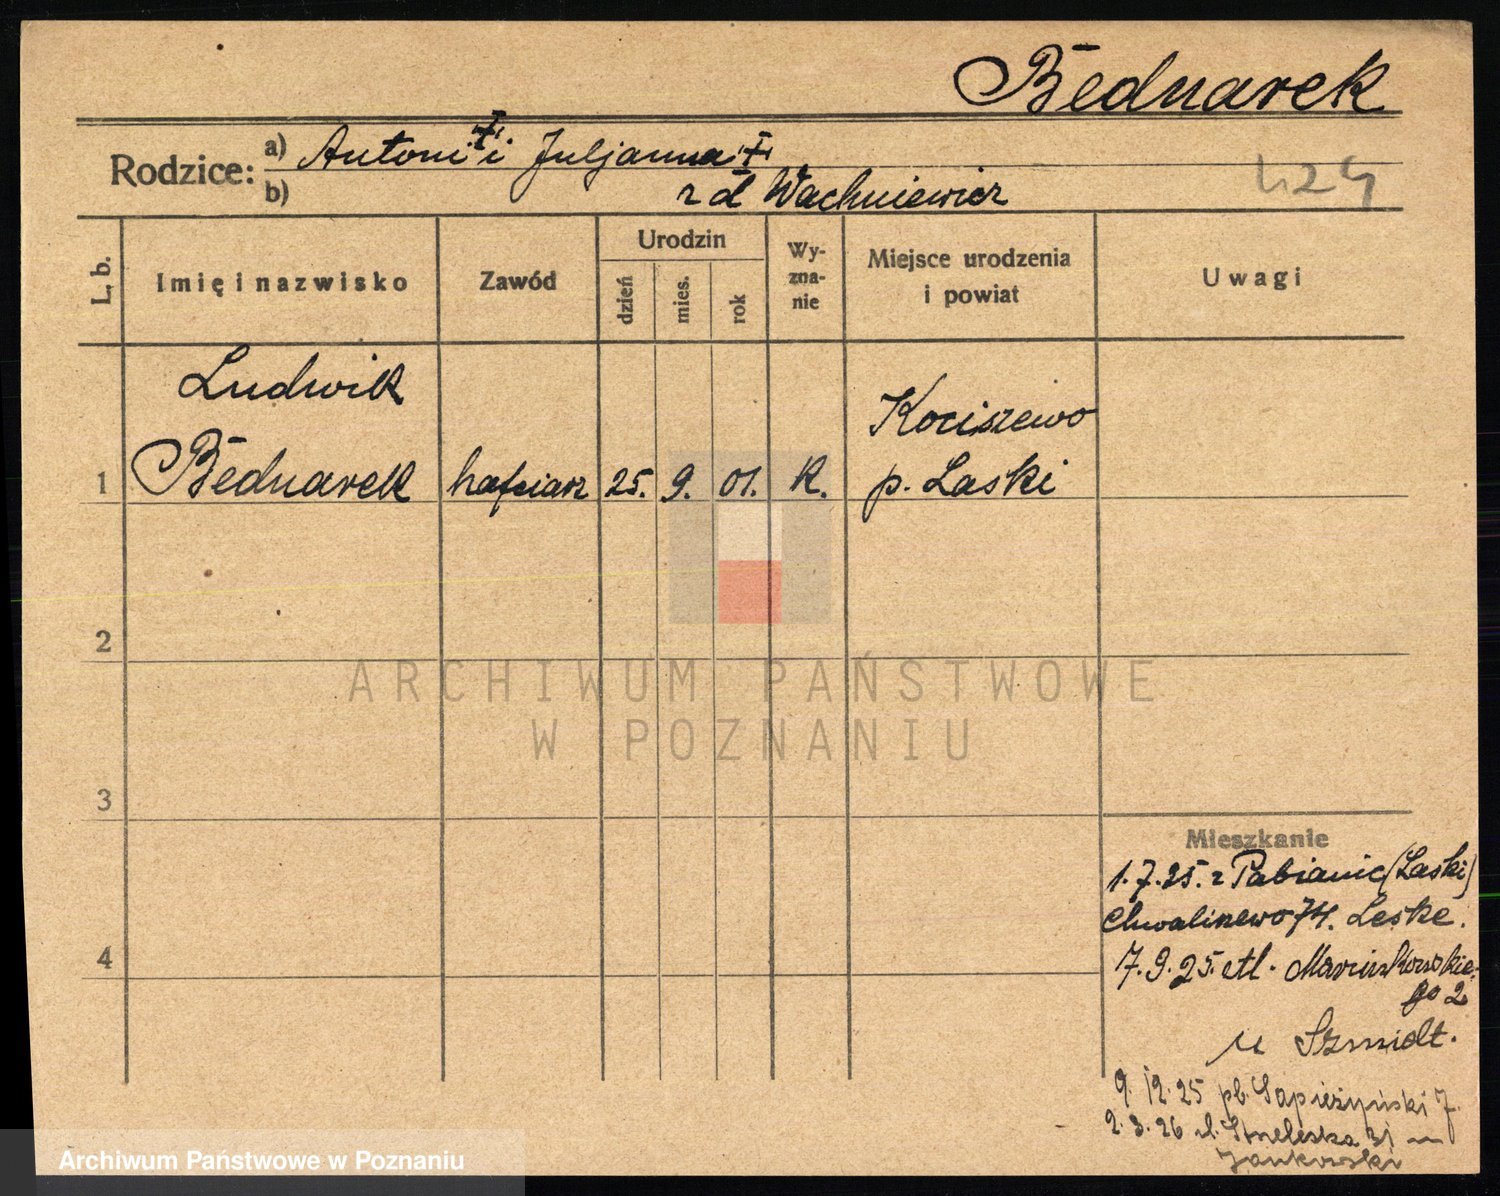 Bednarek
Rodzice: a) Antoni † i Juljanna †
b) z d Wachniewicz
424
L. b. Imię i nazwisko Zawód Urodzin dzień mies. rok Wyzna-nie Miejsce urodzenia i powiat Uwagi
Ludwik
Kociszewo
1 Bednarek hafciarz 25. 9. 01. K. p. Laski
2
ARCHIWUM PAŃSTWOWE
W POZNANIU
3
Mieszkanie
1.7.25. z Pabianic (Laski)
Chwaliszewo 74. Leske.
7.9.25. Marcinkowskie-
go 2
u Szmidt.
9.12.25 pl. Sapieżyński 7.
2.3.26 ul. Strzelecka 31
Jankowski
Archiwum Państwowe w Poznaniu